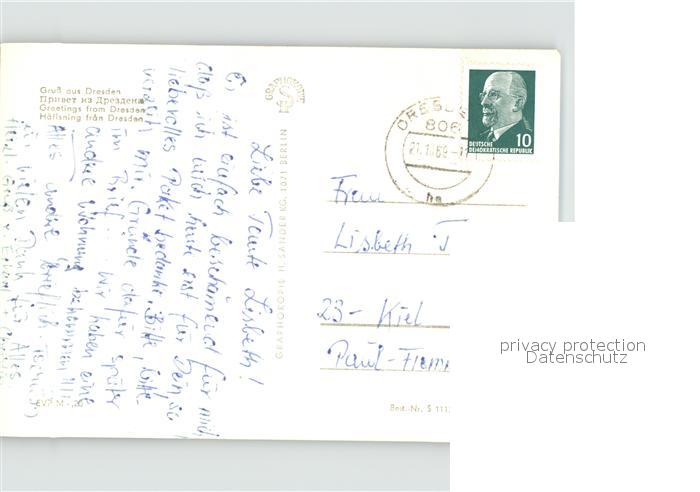 Gruß aus Dresden
Привет из Дрездена
Greetings from Dresden
Hälsning från Dresden
Liebe Tante Lisbeth!
Es ist einfach beschämend für mich
daß ich mich heute erst für Dein so
liebevolles Paket bedanke. Bitte, bitte
verzeih mir. Gründe dafür später
im Brief. Wir haben eine
andere Wohnung bekommen
Alles andere brieflich.
vielen Dank für Alles
EVP M -,20
GRAPHOKOPIE H. SANDER KG, 1071 BERLIN
GRAPHOKOPIE
DRESD
806
69
ha
10
DEUTSCHE
DEMOKRATISCHE REPUBLIK
Frau
Lisbeth T
23- Kiel
Paul-
Best.-Nr. S 111
privacy protection
Datenschutz